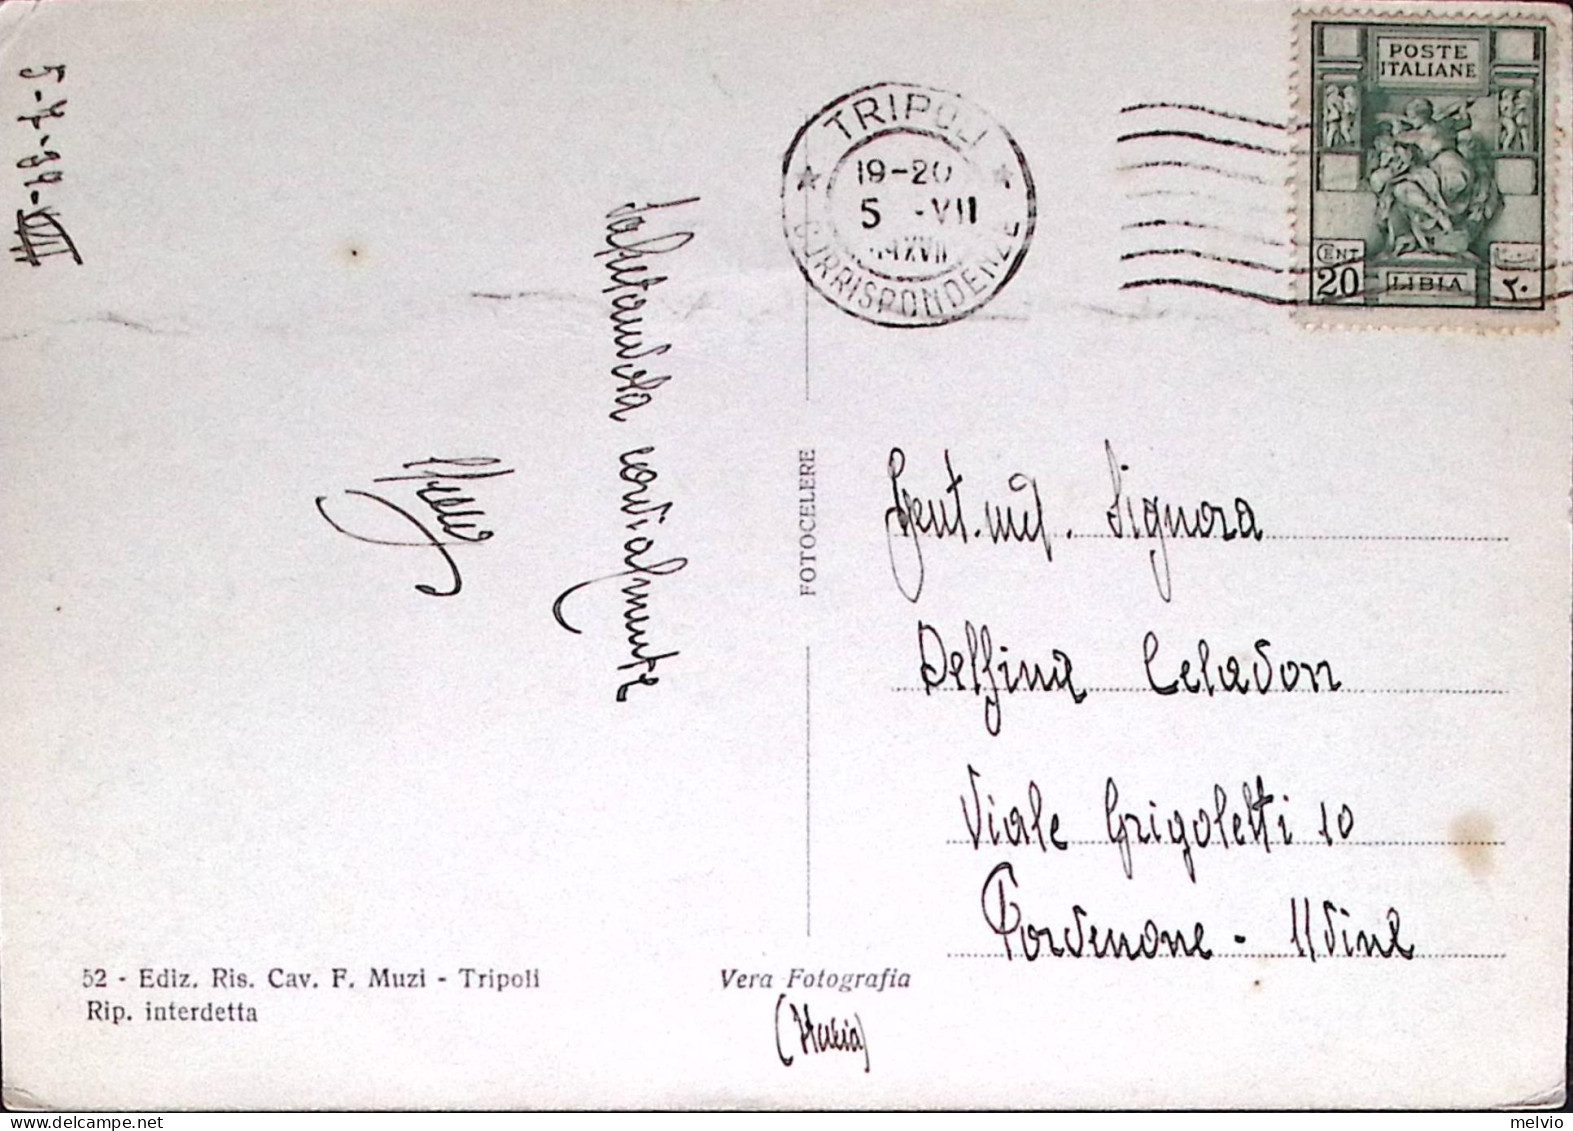 5-7-39-XVII
Salutandola cordialmente
POSTE
ITALIANE
CENT
20
LIBIA
٢٠
TRIPOLI
19-20
5 -VII
XVII
CORRISPONDENZE
FOTOCELERE
Gent.ma. Signora
Delfina Celadon
Viale Grigoletti 10
Pordenone - Udine
52 - Ediz. Ris. Cav. F. Muzi - Tripoli
Rip. interdetta
Vera Fotografia
(Italia)
melvio